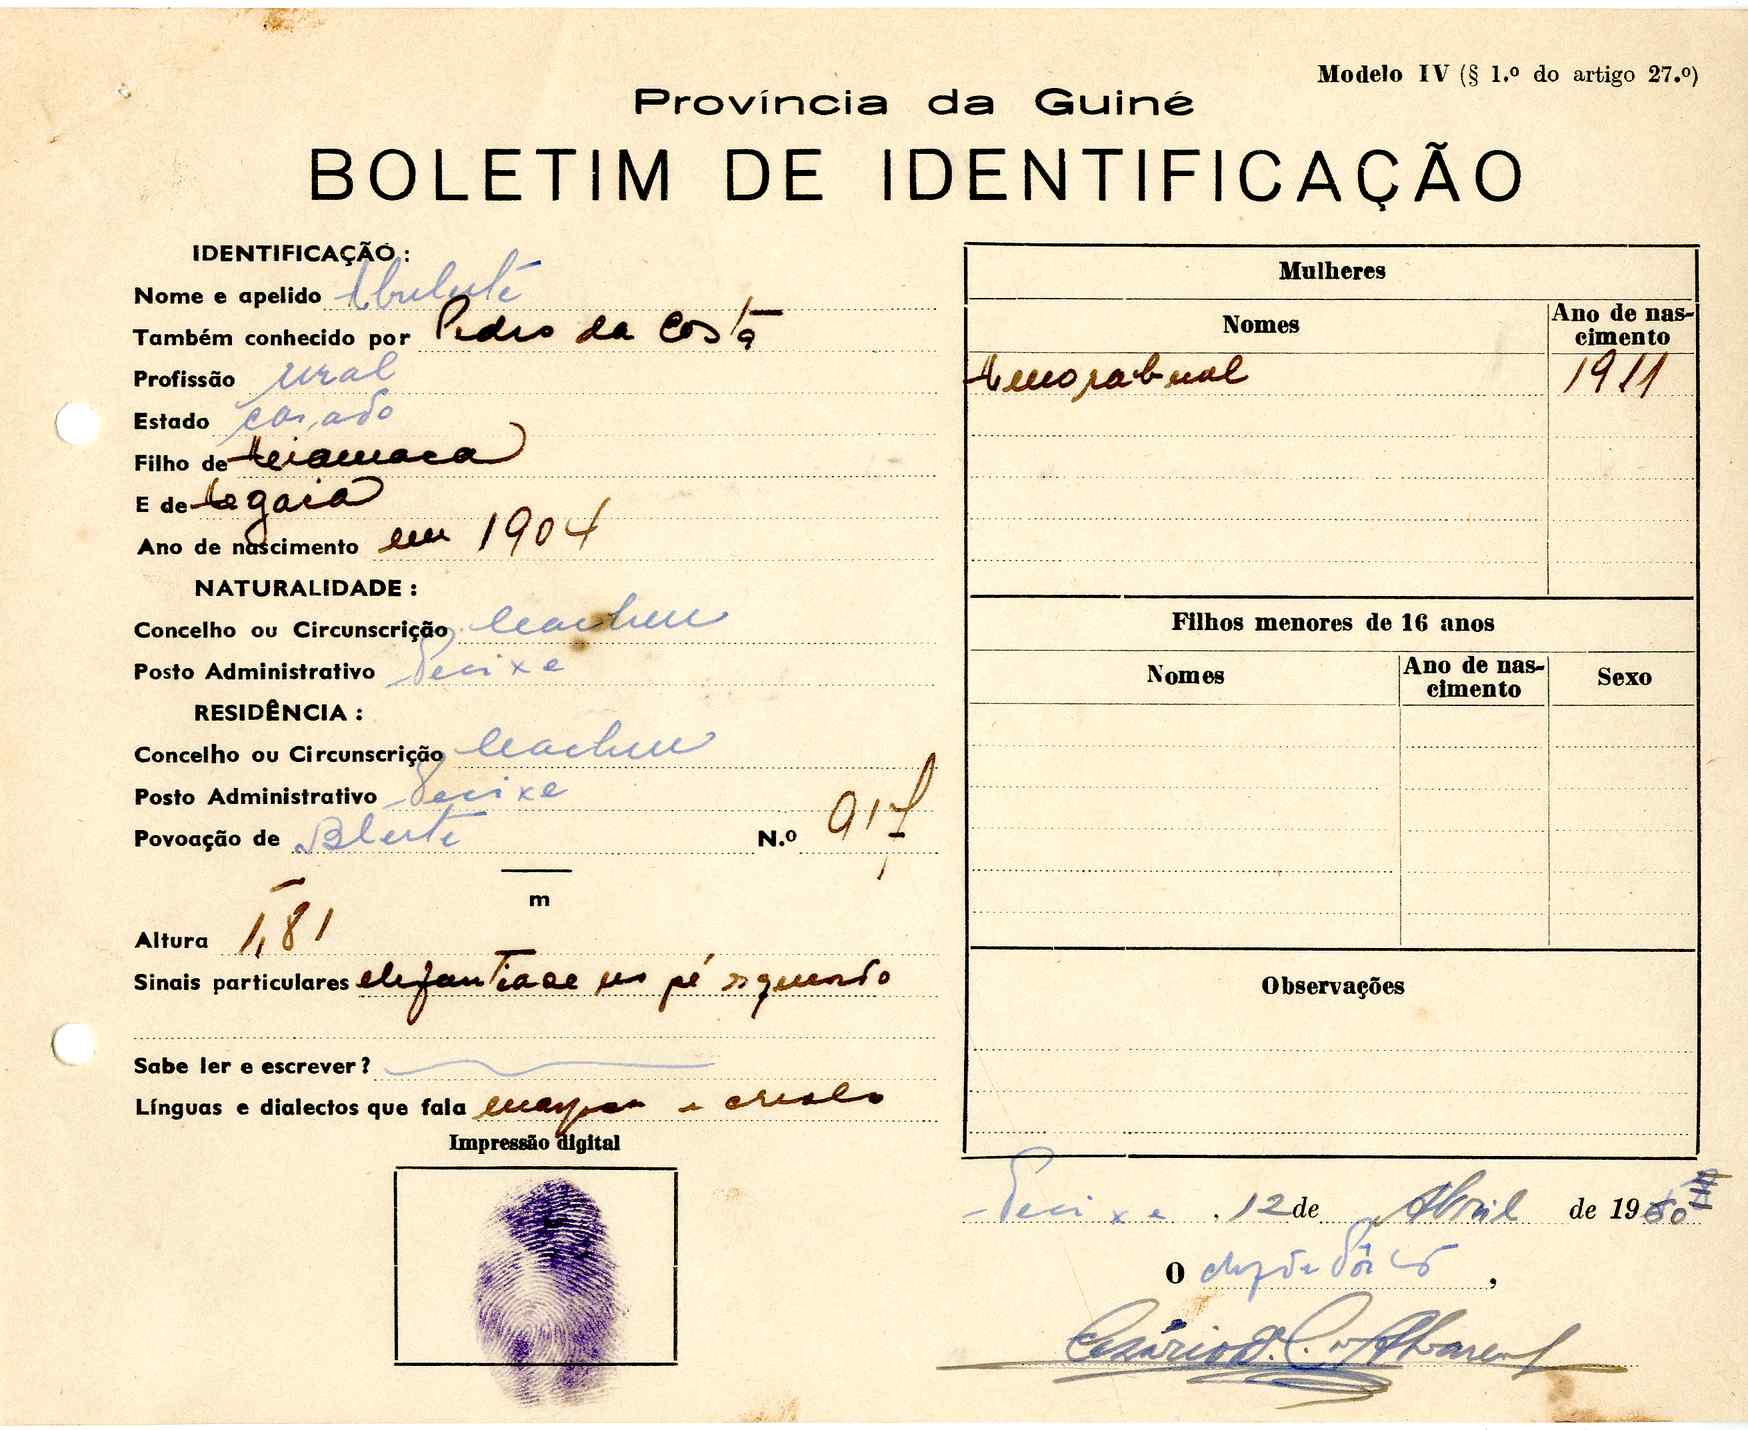 Modelo IV (§ 1.º do artigo 27.º)
Província da Guiné
BOLETIM DE IDENTIFICAÇÃO
IDENTIFICAÇÃO :
Nome e apelido
Também conhecido por Pedro da Costa
Profissão rural
Estado casado
Filho de
E de
Ano de nascimento em 1904
NATURALIDADE :
Concelho ou Circunscrição Cacheu
Posto Administrativo Pecixe
RESIDÊNCIA :
Concelho ou Circunscrição Cacheu
Posto Administrativo Pecixe
Povoação de N.º 917
m
Altura 1,81
Sinais particulares elefantiase no pé esquerdo
Sabe ler e escrever ?
Línguas e dialectos que fala e crioulo
Impressão digital
Mulheres
Nomes
Ano de nas-
cimento
1911
Filhos menores de 16 anos
Nomes
Ano de nas-
cimento
Sexo
Observações
Pecixe, 12 de Abril de 1960
O chefe de Pôsto,